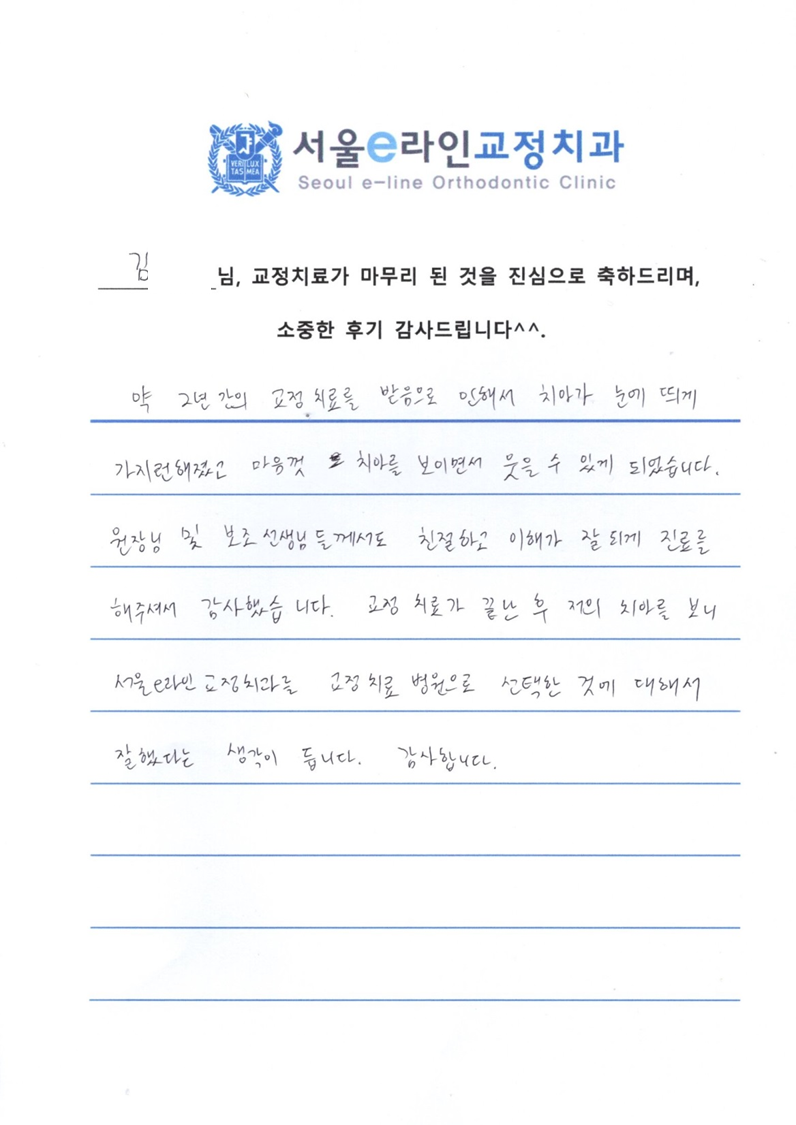 VERI LUX
TAS MEA
서울e라인교정치과
Seoul e-line Orthodontic Clinic
김 님, 교정치료가 마무리 된 것을 진심으로 축하드리며,
소중한 후기 감사드립니다^^.
약 2년 간의 교정 치료를 받음으로 인해서 치아가 눈에 띄게
가지런해졌고 마음껏 치아를 보이면서 웃을 수 있게 되었습니다.
원장님 및 보조 선생님들께서도 친절하고 이해가 잘 되게 진료를
해주셔서 감사했습니다. 교정 치료가 끝난 후 저의 치아를 보니
서울e라인 교정치과를 교정 치료 병원으로 선택한 것에 대해서
잘했다는 생각이 듭니다. 감사합니다.